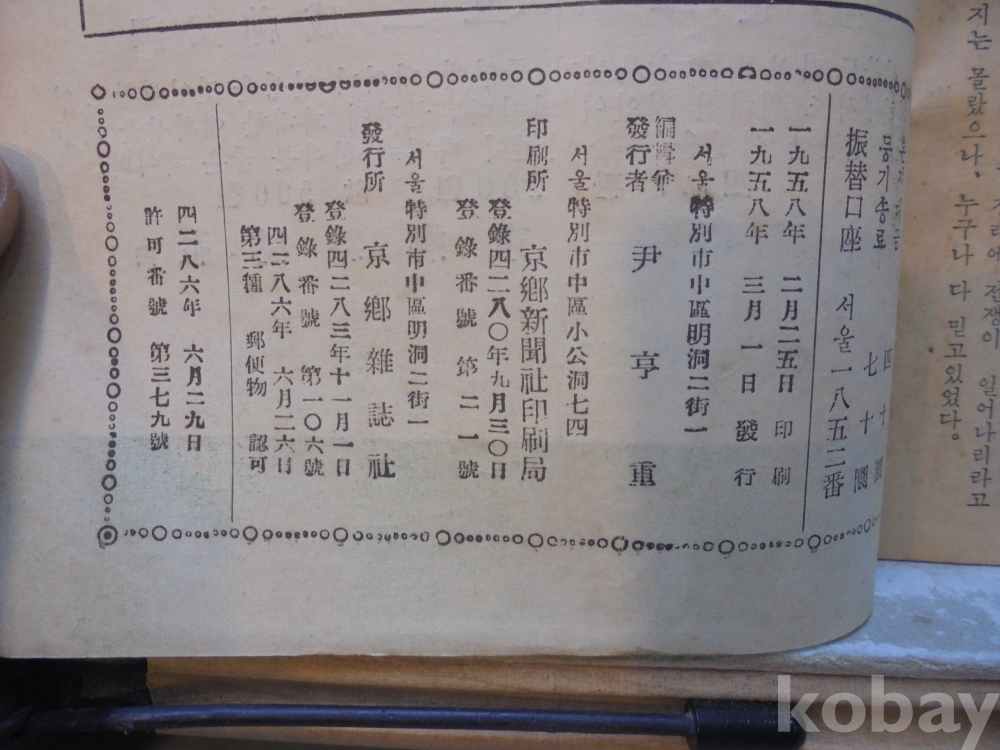 등기송료 七十圜
振替口座 서울一八五二番
一九五八年 二月二五日 印刷
一九五八年 三月一日 發行
서울特別市中區明洞二街一
編輯兼
發行者 尹亨重
서울特別市中區小公洞七四
印刷所 京鄕新聞社印刷局
登錄四二八〇年九月三〇日
登錄番號 第二一號
서울特別市中區明洞二街一
發行所 京鄕雜誌社
登錄四二八三年十一月一日
登錄番號 第一〇六號
四二八六年 六月二六日
第三種 郵便物 認可
四二八六年 六月二九日
許可番號 第三七九號
지는 몰랐으나, 누구나 다 믿고있었다.
전쟁이 일어나리라고
kobay